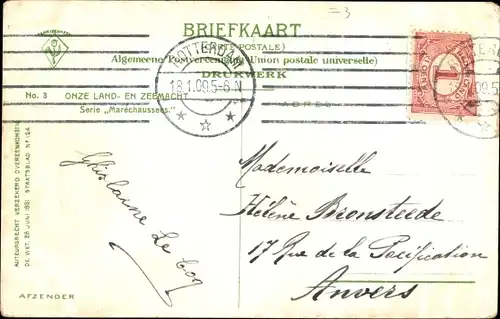 =3
BRIEFKAART
(CARTE POSTALE)
Algemeene Postvereeniging (Union postale universelle)
DRUKWERK
ROTTERDAM
18.1.09.5-6 N
1
No. 3 ONZE LAND- EN ZEEMACHT
Serie „Maréchaussees."
ADRES
AUTEURSRECHT VERZEKERD OVEREENKOMSTIG
DE WET. 28 JUNI 1881. STAATSBLAD Nº 124
Ghislaine Le Coq
Mademoiselle
Hélène Bronsteede
17 Rue de la Pacification
Anvers
AFZENDER